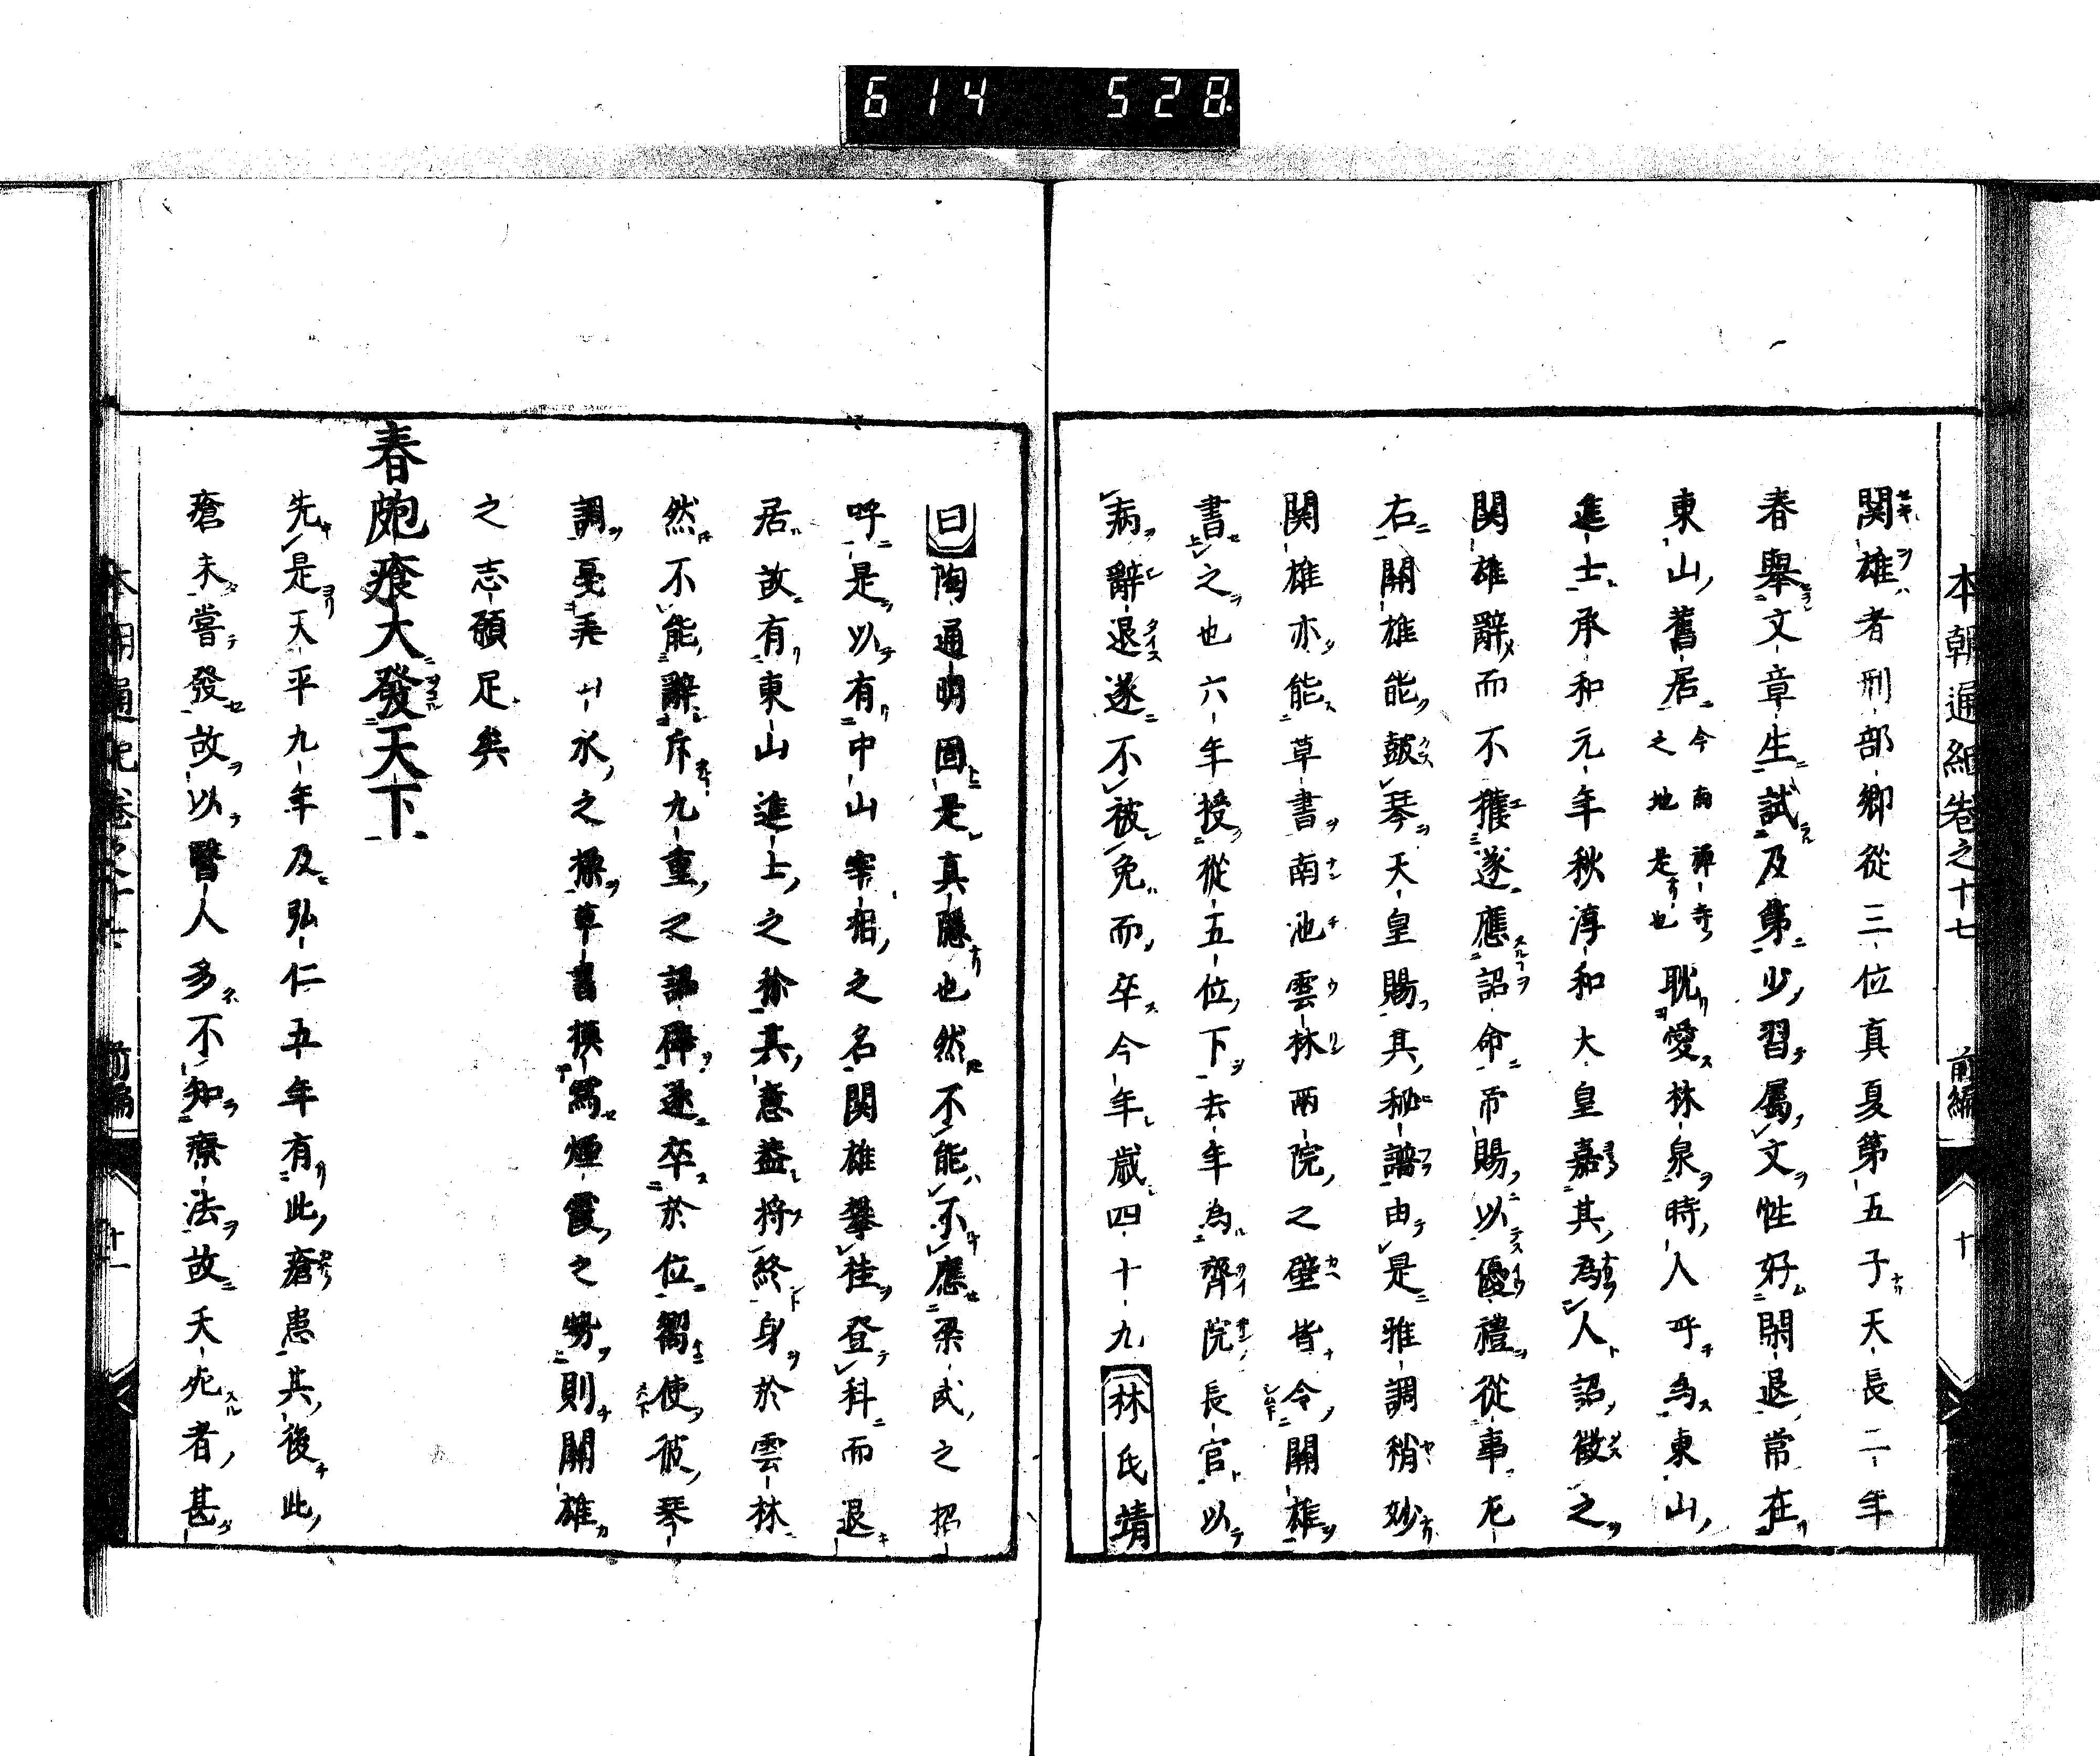 614 528
本朝通紀卷之十七 前編 十
関雄者刑部卿從三位真夏第五子天長二年
春舉文章生試及第少習屬文性好閑退常在
東山舊居今南禪寺之地是也耽愛林泉時人呼為東山
進士承和元年秋淳和大皇嘉其為人詔徵之
関雄辭而不獲遂應詔命帝賜以優禮從事左
右関雄能皷琴天皇賜其秘譜由是雅調稍妙
関雄亦能草書南池雲林兩院之壁皆令関雄
書之也六年授從五位下去年為齊院長官以
病辭退遂不被免而卒今年歲四十九林氏靖
曰陶通明固是真隱也然不能不應梁武之招
呼是以有中山宰相之名関雄攀桂登科而退
居故有東山進士之称其意盖将終身於雲林
然不能辭斥九重之詔遂卒於位嚮使彼琴
調水之操草書摸寫煙霞之勢則関雄
之志願足矣
春皰瘡大發天下
先是天平九年及弘仁五年有此瘡患其後此
瘡未嘗發故以醫人多不知療法故夭死者甚
本朝通紀卷之十七 前編 十一